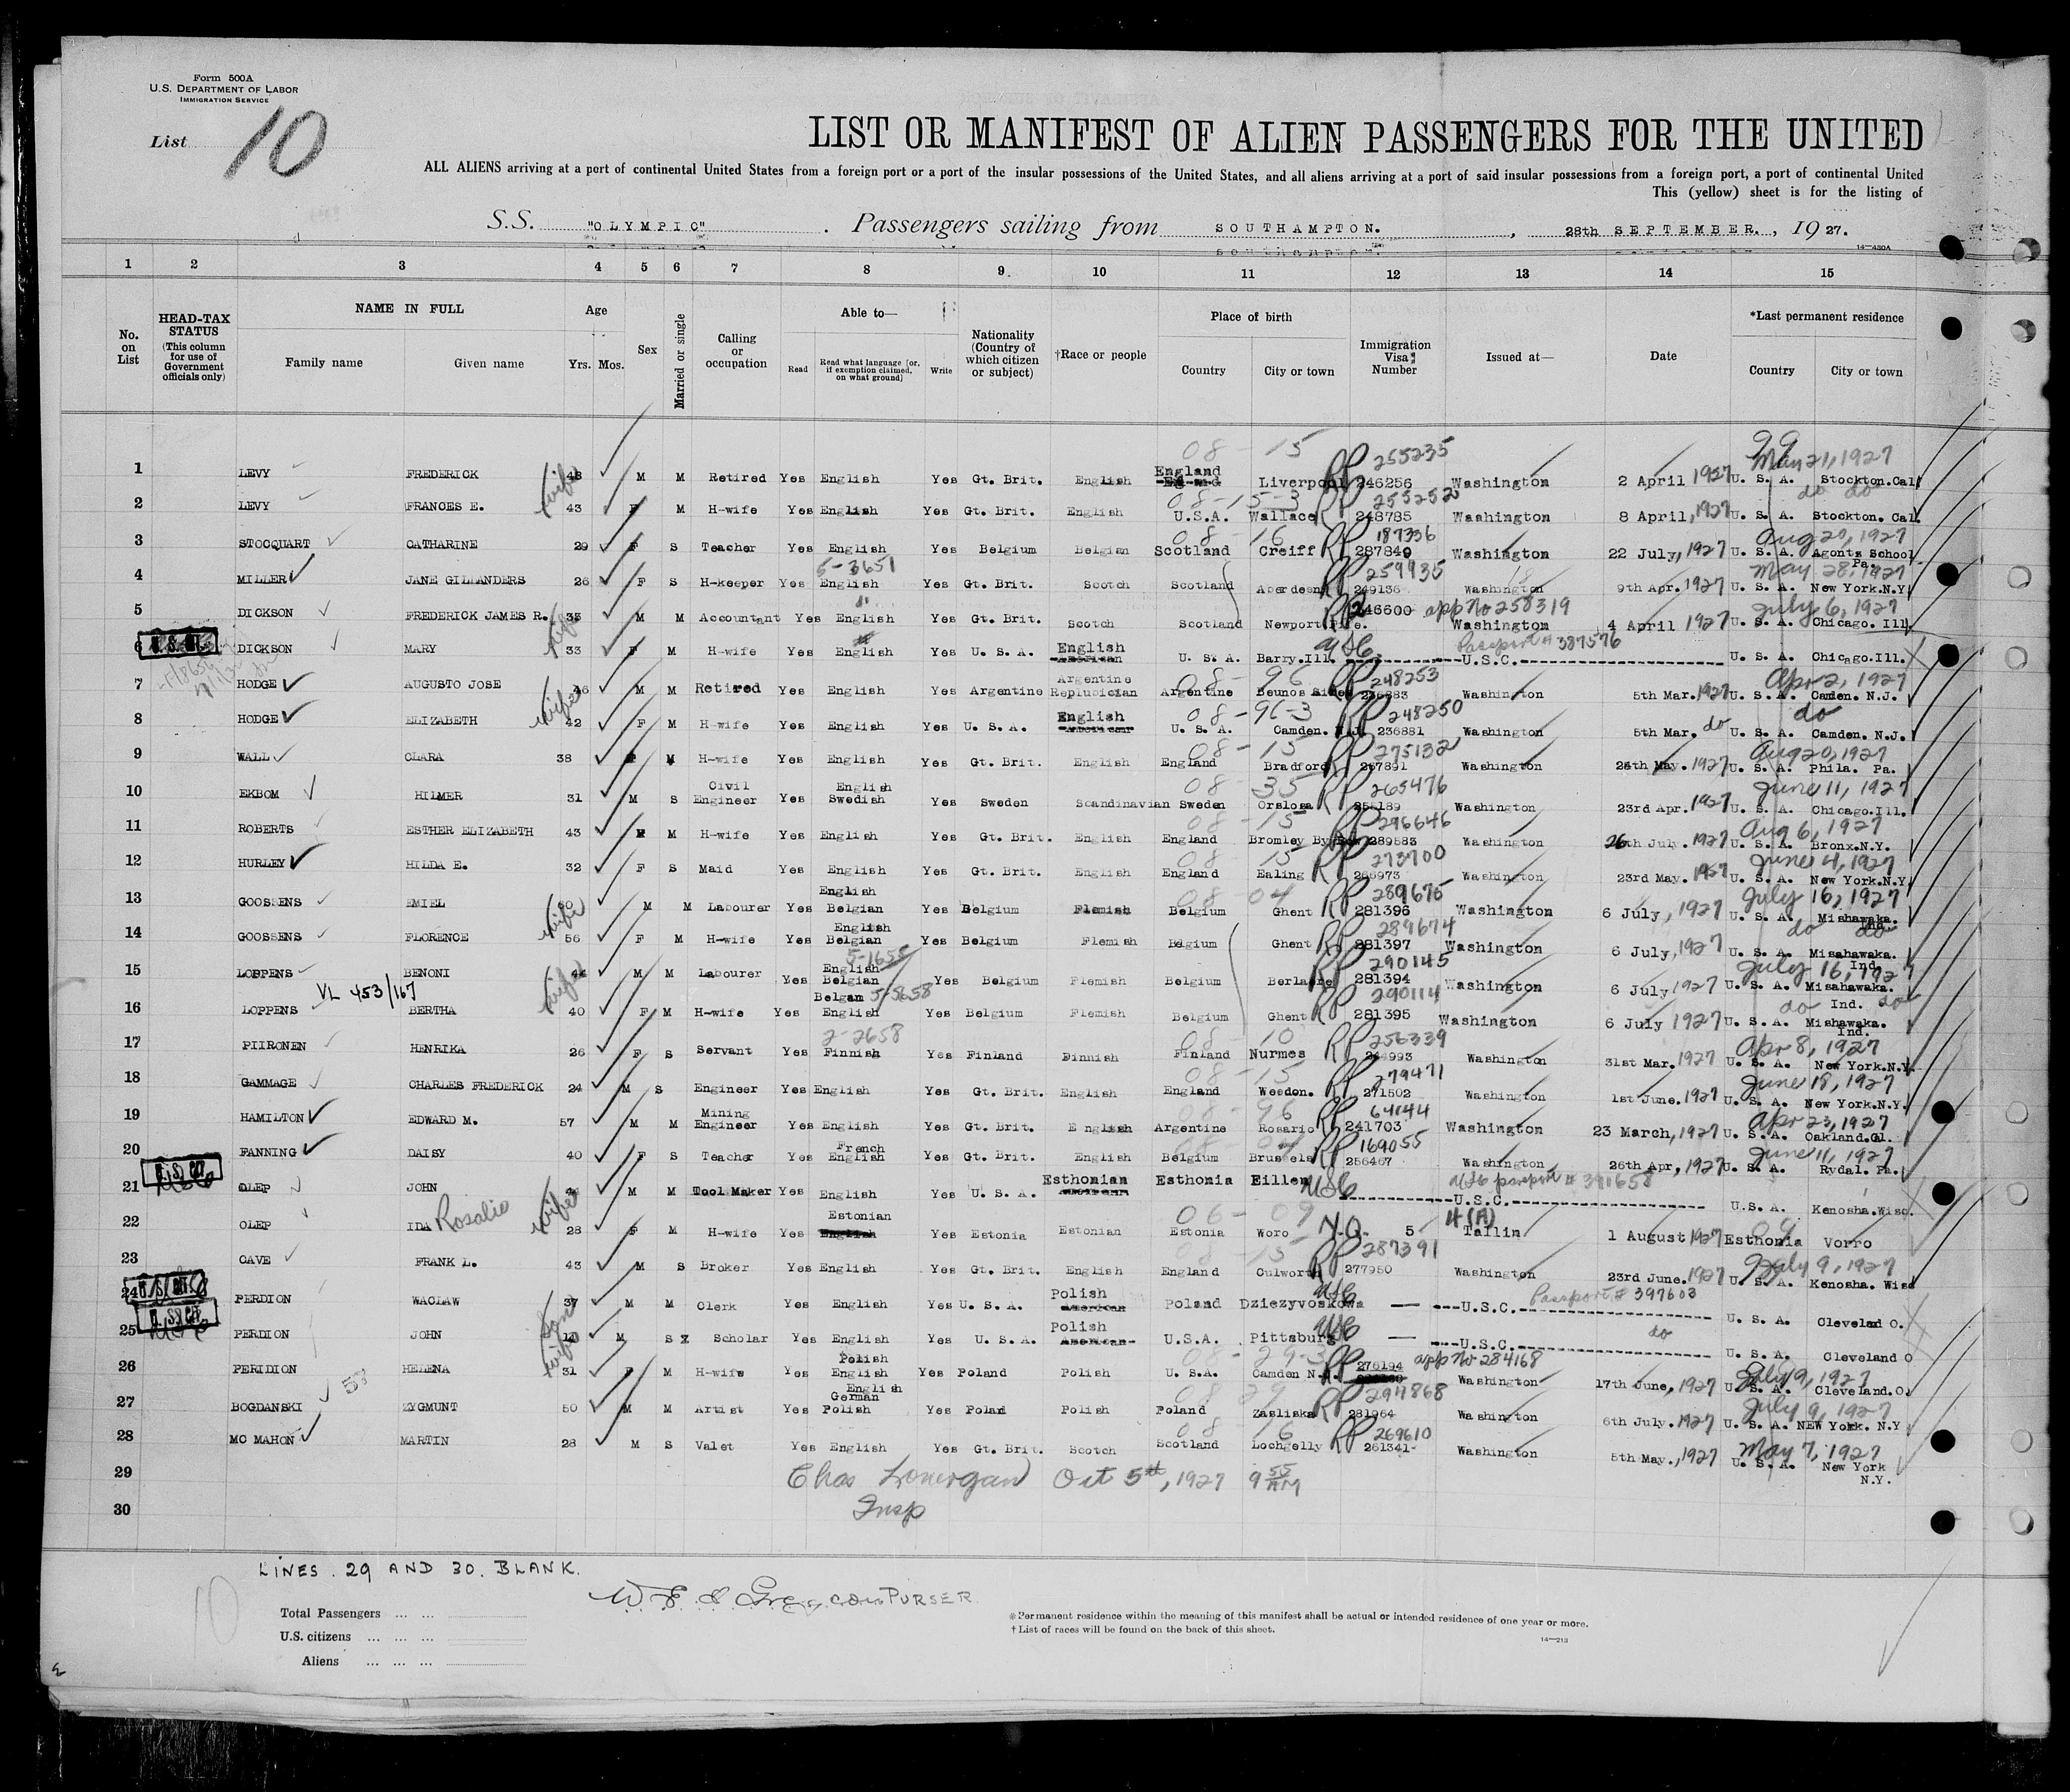 Form 500A
U.S. DEPARTMENT OF LABOR
IMMIGRATION SERVICE
List 10
LIST OR MANIFEST OF ALIEN PASSENGERS FOR THE UNITED
ALL ALIENS arriving at a port of continental United States from a foreign port or a port of the insular possessions of the United States, and all aliens arriving at a port of said insular possessions from a foreign port, a port of continental United
This (yellow) sheet is for the listing of
S.S. "OLYMPIC" . Passengers sailing from SOUTHAMPTON. , 28th SEPTEMBER. , 19 27.
14—430A
1 2 3 4 5 6 7 8 9 10 11 12 13 14 15
No. on List HEAD-TAX STATUS (This column for use of Government officials only) NAME IN FULL Family name Given name Age Yrs. Mos. Sex Married or single Calling or occupation Able to— Read Read what language [or, if exemption claimed, on what ground] Write Nationality (Country of which citizen or subject) †Race or people Place of birth Country City or town Immigration Visa Number Issued at— Date *Last permanent residence Country City or town
08-15 RP 255235 99 May 21, 1927
1 LEVY FREDERICK 48 M M Retired Yes English Yes Gt. Brit. English England Liverpool 246256 Washington 2 April 1927 U. S. A. Stockton.Cal.
08-15-3 RP 255252 do do
2 LEVY FRANCES E. wife 43 F M H-wife Yes English Yes Gt. Brit. English U.S.A. Wallace 248785 Washington 8 April, 1927 U. S. A. Stockton. Cal.
08-16 RP 187336 Aug 20, 1927
3 STOCQUART CATHARINE 29 F S Teacher Yes English Yes Belgium Belgian Scotland Creiff 287840 Washington 22 July, 1927 U. S. A. Agontz School Pa.
5-3651 RP 259935 May 28, 1927
4 MILLER JANE GILLANDERS 26 F S H-keeper Yes English Yes Gt. Brit. Scotch Scotland Aberdeen 249136 Washington 9th Apr. 1927 U. S. A. New York.N.Y.
RP app no 258319 July 6, 1927
5 DICKSON FREDERICK JAMES R. 33 M M Accountant Yes English Yes Gt. Brit. Scotch Scotland Newport Fife. 246600 Washington 4 April 1927 U. S. A. Chicago. Ill.
USC Passport # 387576
6 DICKSON MARY wife 33 F M H-wife Yes English Yes U. S. A. English American U. S. A. Barry.Ill. U.S.C. U. S. A. Chicago.Ill.
08-96 RP 248253 Apr 2, 1927
7 HODGE AUGUSTO JOSE 46 M M Retired Yes English Yes Argentine Argentine Replubician Argentine Beunos Aires 236883 Washington 5th Mar. 1927 U. S. A. Camden. N.J.
08-96-3 RP 248250 do
8 HODGE ELIZABETH wife 42 F M H-wife Yes English Yes U. S. A. English American U. S. A. Camden. N.J. 236881 Washington 5th Mar. do U. S. A. Camden. N.J.
08-15 RP 275132 Aug 20, 1927
9 WALL CLARA 38 F M H-wife Yes English Yes Gt. Brit. English England Bradford 267891 Washington 24th May. 1927 U. S. A. Phila. Pa.
08-35 RP 265476 June 11, 1927
10 EKBOM HILMER 31 M S Civil Engineer Yes English Swedish Yes Sweden Scandinavian Sweden Orslosa 256189 Washington 23rd Apr. 1927 U. S. A. Chicago.Ill.
08-15 RP 296646 Aug 6, 1927
11 ROBERTS ESTHER ELIZABETH 43 F M H-wife Yes English Yes Gt. Brit. English England Bromley By Bow 289583 Washington 26th July. 1927 U. S. A. Bronx.N.Y.
08-15 RP 273700 June 4, 1927
12 HURLEY HILDA E. 32 F S Maid Yes English Yes Gt. Brit. English England Ealing 266973 Washington 23rd May. 1927 U. S. A. New York.N.Y.
08-04 RP 289675 July 16, 1927
13 GOOSSENS EMIEL M M Labourer Yes English Belgian Yes Belgium Flemish Belgium Ghent 281396 Washington 6 July, 1927 U. S. A. Mishawaka. Ind.
RP 289674 do do
14 GOOSSENS FLORENCE wife 56 F M H-wife Yes English Belgian Yes Belgium Flemish Belgium Ghent 281397 Washington 6 July, 1927 U. S. A. Mishawaka. Ind.
5-1658 RP 290145 July 16, 1927
15 LOPPENS BENONI 44 M M Labourer Yes English Belgian Yes Belgium Flemish Belgium Berlaere 281394 Washington 6 July 1927 U. S. A. Mishawaka. Ind.
VL 453/167 5-5658 RP 290114 do do
16 LOPPENS BERTHA wife 40 F M H-wife Yes Belgan English Yes Belgium Flemish Belgium Ghent 281395 Washington 6 July 1927 U. S. A. Mishawaka. Ind.
2-2658 08-10 RP 256339 Apr 8, 1927
17 PIIRONEN HENRIKA 26 F S Servant Yes Finnish Yes Finland Finnish Finland Nurmes 244993 Washington 31st Mar. 1927 U. S. A. New York.N.Y.
08-15 RP 279471 June 18, 1927
18 GAMMAGE CHARLES FREDERICK 24 M S Engineer Yes English Yes Gt. Brit. English England Weedon. 271502 Washington 1st June. 1927 U. S. A. New York.N.Y.
08-96 RP 64144 Apr 23, 1927
19 HAMILTON EDWARD M. 57 M M Mining Engineer Yes English Yes Gt. Brit. English Argentine Rosario 241703 Washington 23 March, 1927 U. S. A. Oakland.Cl.
08-04 RP 169055 June 11, 1927
20 FANNING DAISY 40 F S Teacher Yes French English Yes Gt. Brit. English Belgium Brussels 256467 Washington 26th Apr, 1927 U. S. A. Rydal. Pa.
USC USC passport # 391658
21 OLEP JOHN 41 M M Tool Maker Yes English Yes U. S. A. Esthonian American Esthonia Eillen U.S.C. U.S.A. Kenosha.Wisc.
06-09 N.Q. 4 (A)
22 OLEP IDA Rosalie wife 28 F M H-wife Yes Estonian English Yes Estonia Estonian Estonia Woro 5 Tallin 1 August 1927 Esthonia Vorro
08-15 RP 287391 July 9, 1927
23 CAVE FRANK L. 43 M S Broker Yes English Yes Gt. Brit. English England Culworth 277950 Washington 23rd June. 1927 U. S. A. Kenosha. Wisc
USC Passport # 397603
24 PERDION WACLAW 37 M M Clerk Yes English Yes U. S. A. Polish American Poland Dziezyvoskowa U.S.C. U. S. A. Cleveland O.
USC do
25 PERDION JOHN son M S Scholar Yes English Yes U. S. A. Polish American U.S.A. Pittsburg U.S.C. U. S. A. Cleveland O
08-29-3 RP app no 284168 July 9, 1927
26 PERIDION HELENA wife 31 F M H-wife Yes Polish English Yes Poland Polish U. S.A. Camden N.J. 276194 Washington 17th June, 1927 U. S. A. Cleveland.O.
08 29 RP 294868 July 9, 1927
27 BOGDANSKI ZYGMUNT 50 M M Artist Yes English German Polish Yes Polan Polish Poland Zasliska 281964 Washington 6th July. 1927 U. S. A. NEW York. N.Y
08-16 RP 269610 May 7, 1927
28 MC MAHON MARTIN 28 M S Valet Yes English Yes Gt. Brit. Scotch Scotland Lochgelly 261341 Washington 5th May., 1927 U. S. A. New York N.Y.
29 Chas Lonergan Oct 5th, 1927 9 55 AM
30 Insp
LINES. 29 AND 30. BLANK.
PURSER
Total Passengers ... ...
U.S. citizens ... ... ...
Aliens ... ... ...
*Permanent residence within the meaning of this manifest shall be actual or intended residence of one year or more.
†List of races will be found on the back of this sheet.
14—213